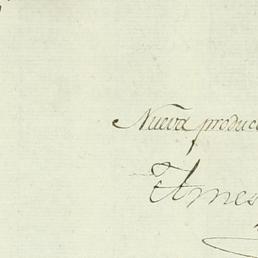 Nueva produc
Ames